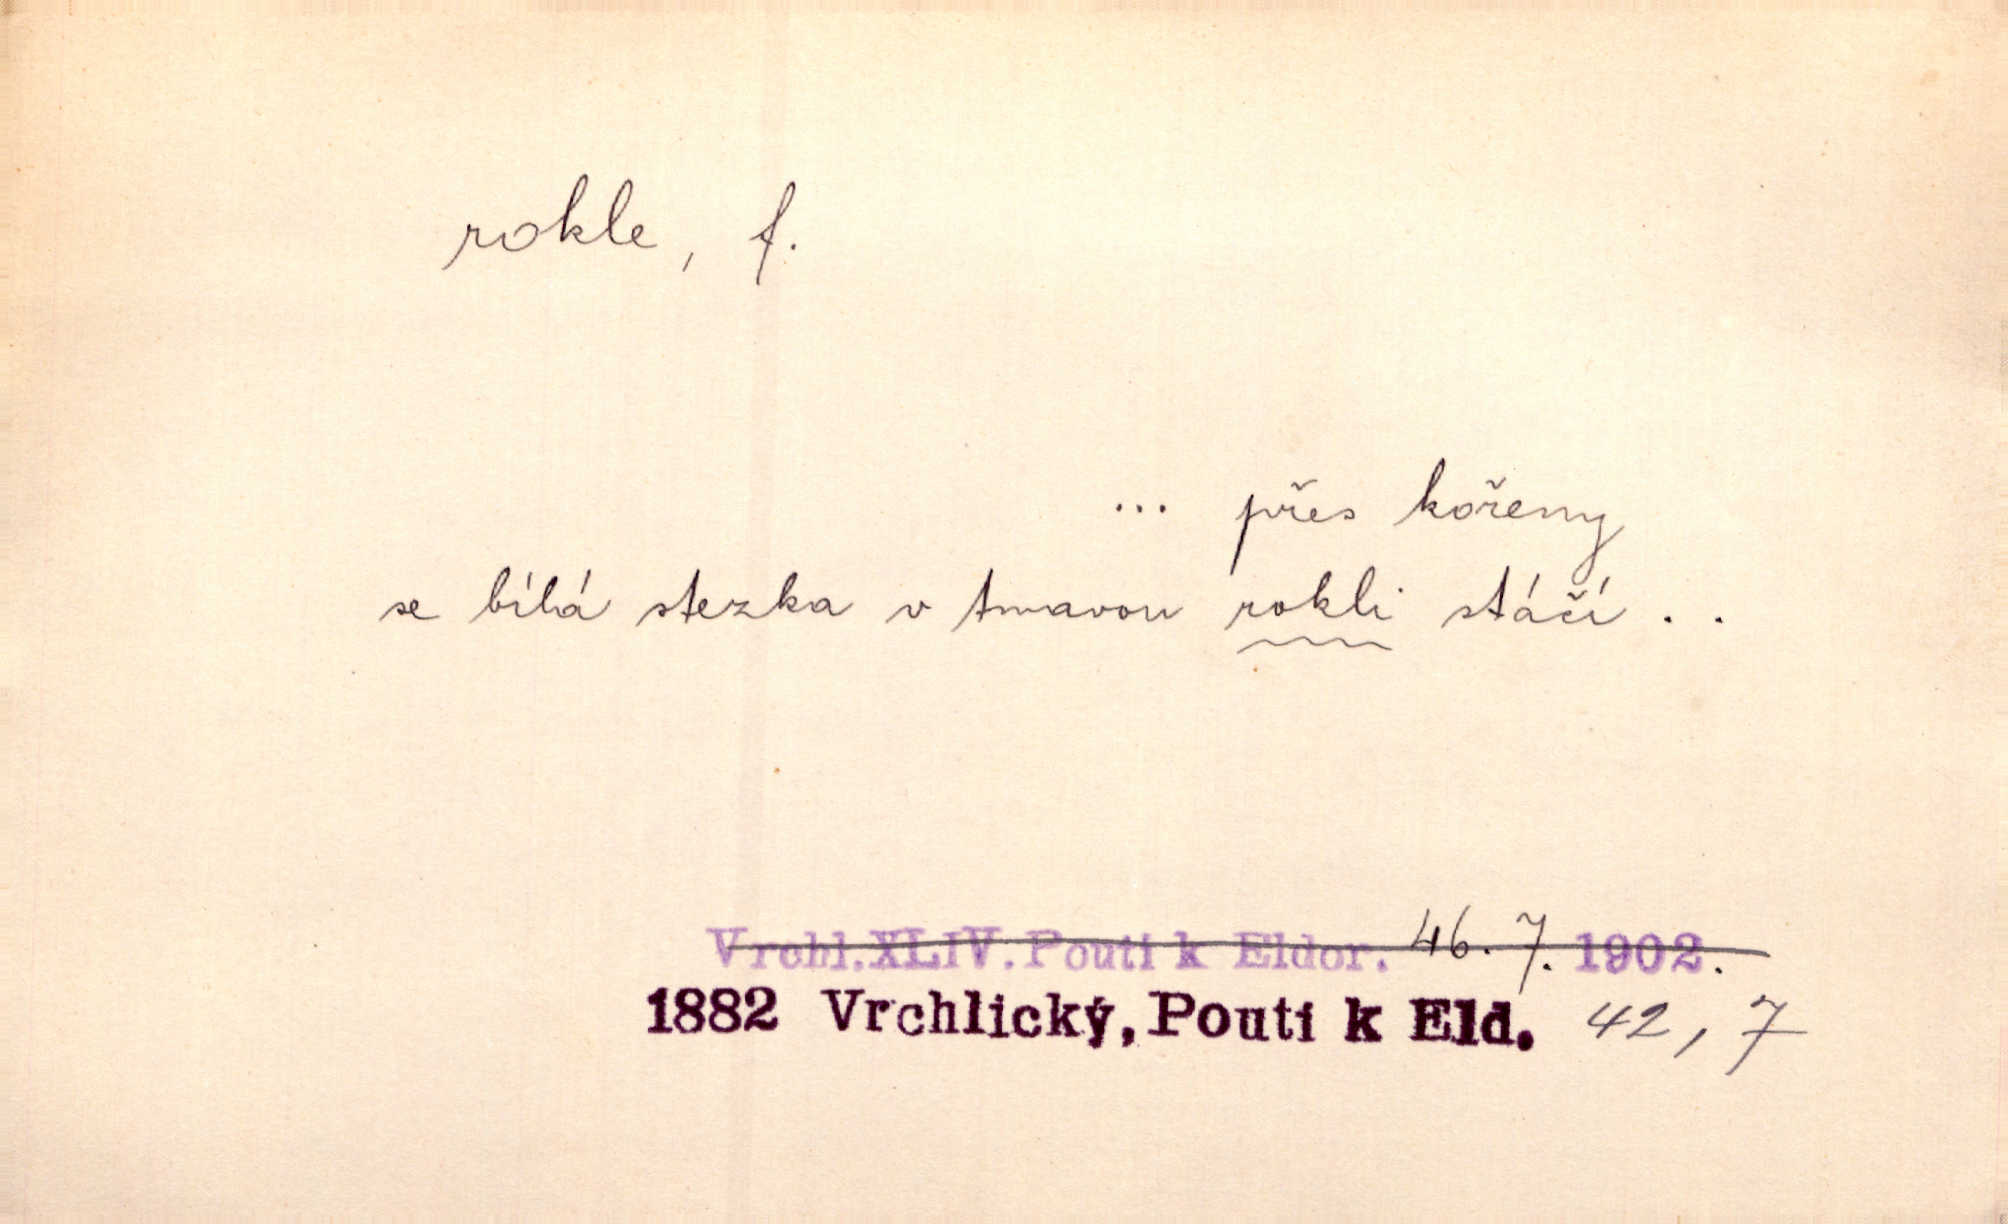 rokle, f.
... přes kořeny
se bílá stezka v tmavou rokli stáčí . .
Vrchl. XLIV. Pouti k Eldor. 46. 7. 1902.
1882 Vrchlický, Pouti k Eld. 42, 7